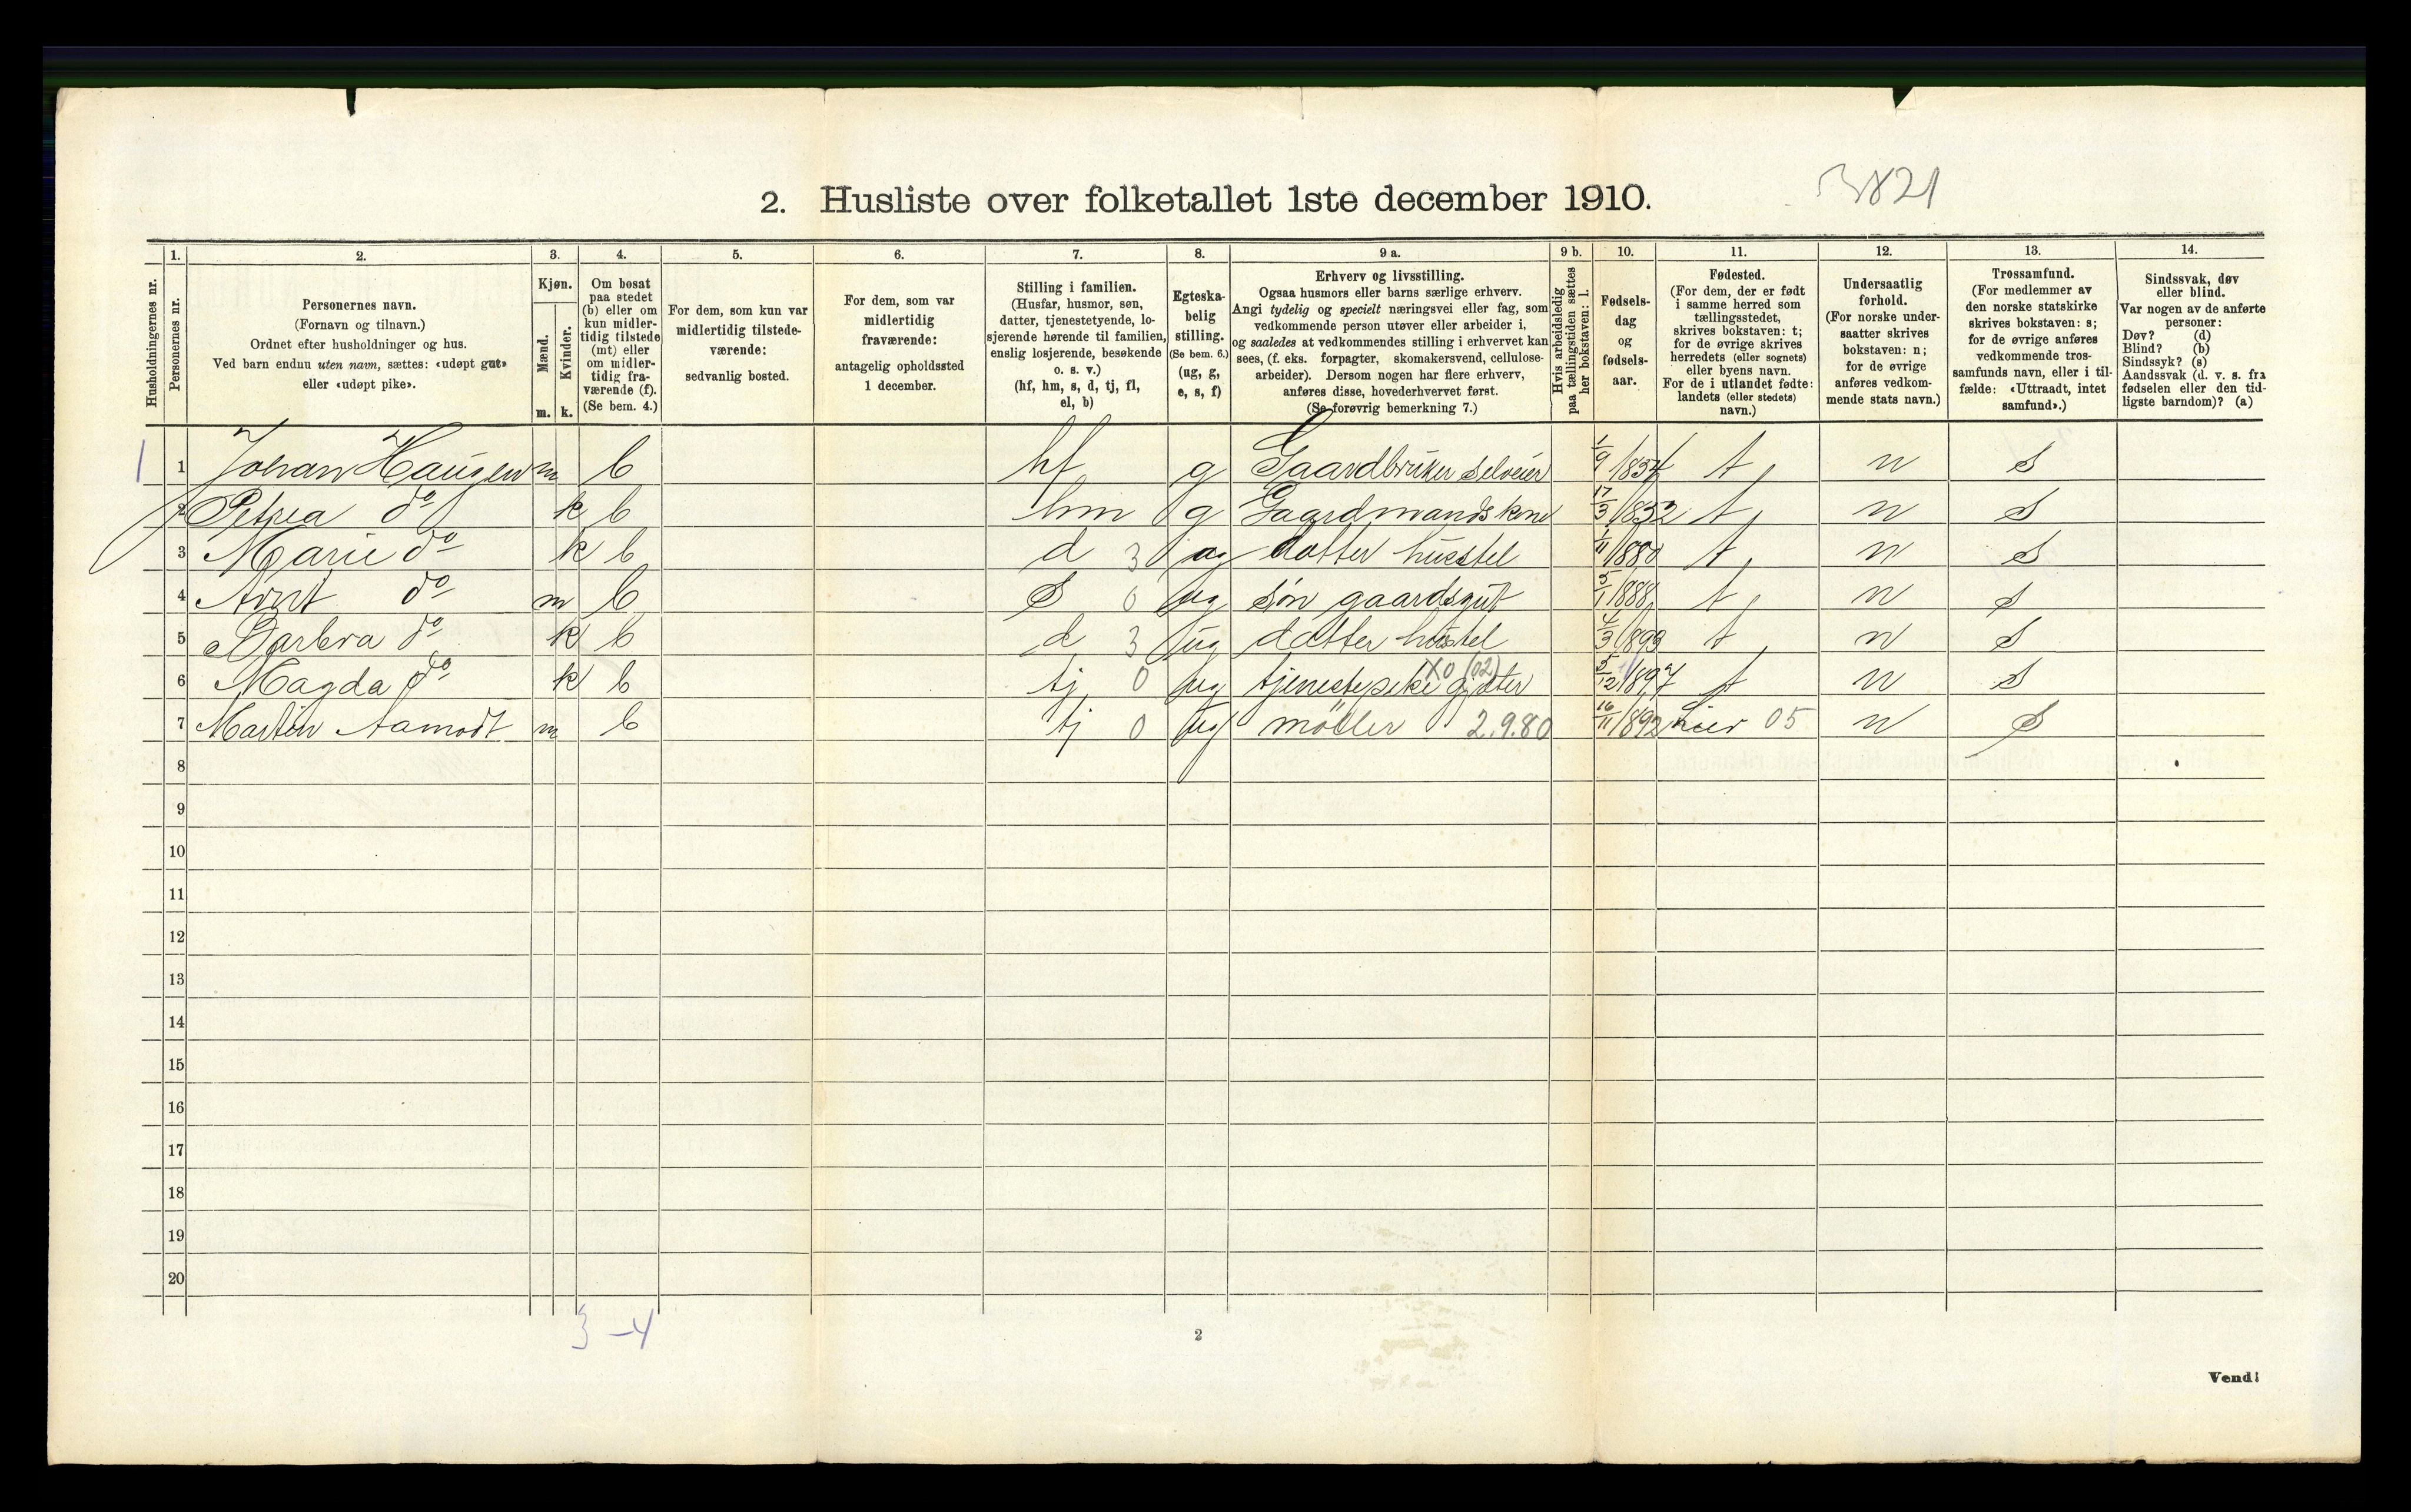 3821
2. Husliste over folketallet 1ste december 1910.
Husholdningernes nr.
1.
Personernes nr.
2.
Personernes navn.
(Fornavn og tilnavn.)
Ordnet efter husholdninger og hus.
Ved barn endnu uten navn, sættes: «udøpt gut»
eller «udøpt pike».
3.
Kjøn.
Mænd.
Kvinder.
m. k.
4.
Om bosat
paa stedet
(b) eller om
kun midler-
tidig tilstede
(mt) eller
om midler-
tidig fra-
værende (f).
(Se bem. 4.)
5.
For dem, som kun var
midlertidig tilstede-
værende:
sedvanlig bosted.
6.
For dem, som var
midlertidig
fraværende:
antagelig opholdssted
1 december.
7.
Stilling i familien.
(Husfar, husmor, søn,
datter, tjenestetyende, lo-
sjerende hørende til familien,
enslig losjerende, besøkende
o. s. v.)
(hf, hm, s, d, tj, fl,
el, b)
8.
Egteska-
belig
stilling.
(Se bem. 6.)
(ug, g,
e, s, f)
9 a.
Erhverv og livsstilling.
Ogsaa husmors eller barns særlige erhverv.
Angi tydelig og specielt næringsvei eller fag, som
vedkommende person utøver eller arbeider i,
og saaledes at vedkommendes stilling i erhvervet kan
sees, (f. eks. forpagter, skomakersvend, cellulose-
arbeider). Dersom nogen har flere erhverv,
anføres disse, hovederhvervet først.
(Se forøvrig bemerkning 7.)
9 b.
Hvis arbeidsledig
paa tællingstiden sættes
her bokstaven: l.
10.
Fødsels-
dag
og
fødsels-
aar.
11.
Fødested.
(For dem, der er født
i samme herred som
tællingsstedet,
skrives bokstaven: t;
for de øvrige skrives
herredets (eller sognets)
eller byens navn.
For de i utlandet fødte:
landets (eller stedets)
navn.)
12.
Undersaatlig
forhold.
(For norske under-
saatter skrives
bokstaven: n;
for de øvrige
anføres vedkom-
mende stats navn.)
13.
Trossamfund.
(For medlemmer av
den norske statskirke
skrives bokstaven: s;
for de øvrige anføres
vedkommende tros-
samfunds navn, eller i til-
fælde: «Uttraadt, intet
samfund».)
14.
Sindssvak, døv
eller blind.
Var nogen av de anførte
personer:
Døv? (d)
Blind? (b)
Sindssyk? (s)
Aandssvak (d. v. s. fra
fødselen eller den tid-
ligste barndom)? (a)
1 1 Johan Haugen m b hf g Gaardbruker selveier 1/9 1854 t n S
2 Petrea do k b hm g Gaardmands kone 17/3 1852 t n S
3 Marie do k b d 3 ug datter husstel 1/11 1880 t n S
4 do m b S 0 ug søn gaardsgut 5/1 1888 t n S
5 Barbra do k b d 3 ug datter husstel 4/3 1893 t n S
6 Magda do k b tj 0 ug tjenestepike XO (02) 5/12 1897 t n S
7 Martin Aamodt m b tj 0 ug møller 2.9.80 16/11 1892 Lier 05 n S
8
9
10
11
12
13
14
15
16
17
18
19
20
3-4
2
Vend!